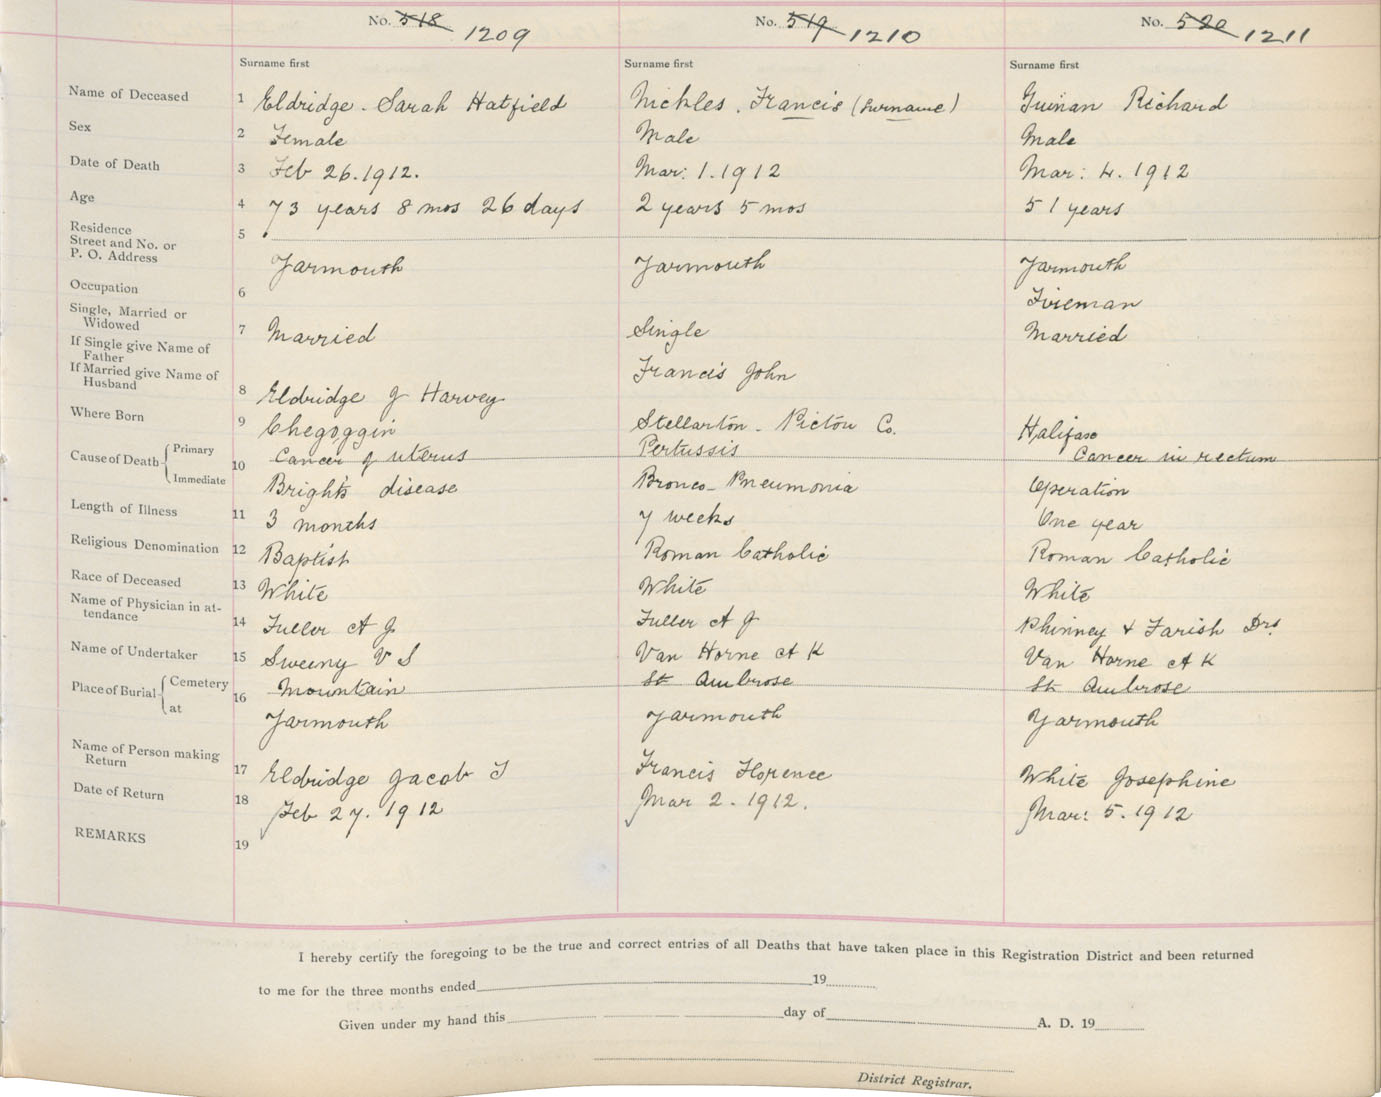 No. 518 1209 No. 519 1210 No. 520 1211
Surname first Surname first Surname first
Name of Deceased 1 Eldridge. Sarah Hatfield Nickles. Francis (Surname) Guinan Richard
Sex 2 Female Male Male
Date of Death 3 Feb 26.1912. Mar: 1.1912 Mar: 4.1912
Age 4 73 years 8 mos 26 days 2 years 5 mos 51 years
Residence
Street and No. or 5
P. O. Address Yarmouth Yarmouth Yarmouth
Occupation 6 Fireman
Single, Married or
Widowed 7 Married Single Married
If Single give Name of
Father Francis John
If Married give Name of
Husband 8 Eldridge J Harvey
Where Born 9 Chegoggin Stellarton - Pictou Co. Halifax
Cause of Death Primary 10 Cancer of uterus Pertussis Cancer in rectum
Immediate Bright's disease Bronco-Pneumonia Operation
Length of Illness 11 3 months 7 weeks One year
Religious Denomination 12 Baptist Roman Catholic Roman Catholic
Race of Deceased 13 White White White
Name of Physician in at-
tendance 14 Fuller A J Fuller A J Phinney & Farish Drs.
Name of Undertaker 15 Sweeny V S Van Horne A K Van Horne A K
Place of Burial Cemetery 16 Mountain St Ambrose St Ambrose
at Yarmouth Yarmouth Yarmouth
Name of Person making
Return 17 Eldridge Jacob T Francis Florence White Josephine
Date of Return 18 Feb 27.1912 Mar 2-1912. Mar: 5.1912
REMARKS 19
I hereby certify the foregoing to be the true and correct entries of all Deaths that have taken place in this Registration District and been returned
to me for the three months ended 19
Given under my hand this day of A. D. 19
District Registrar.